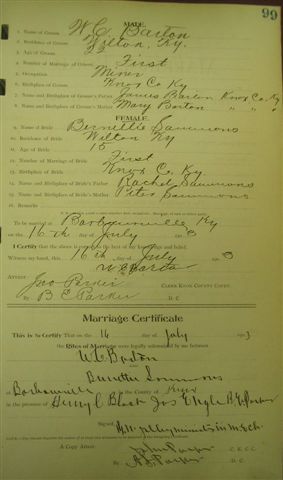 99
MALE.
1. Name of Groom W. C. Barton
2. Residence of Groom Wilton, Ky.
3. Age of Groom
4. Number of Marriage of Groom First
5. Occupation Miner
6. Birthplace of Groom Knox Co Ky
7. Name and Birthplace of Groom's Father James Barton Knox Co. Ky
8. Name and Birthplace of Groom's Mother Mary Barton " " "
FEMALE.
9. Name of Bride Sammons
10. Residence of Bride Wilton Ky
11. Age of Bride 15
12. Number of Marriage of Bride First
13. Birthplace of Bride Knox Co. Ky.
14. Name and Birthplace of Bride's Father Rachel Sammons
15. Name and Birthplace of Bride's Mother Sammons
16. Remarks
To be married at Barbourville Ky
on the 16th day of July 3
I Certify that the above is correct to the best of my knowledge and belief.
Witness my hand, this 16th day of July 3
W C Barton
Attest:
Jno Parker CLERK KNOX COUNTY COURT.
By B C Parker D. C.
Marriage Certificate
This is to Certify That on the 16 day of July 3
the Rites of Marriage were legally solemnized by me between
W C Barton
and
Sammons
at Barbourville in the County of Knox
in the presence of Henry C Black Jas Engle
Signed
A Copy Attest: John Parker C.K.C.C.
By Parker D.C.